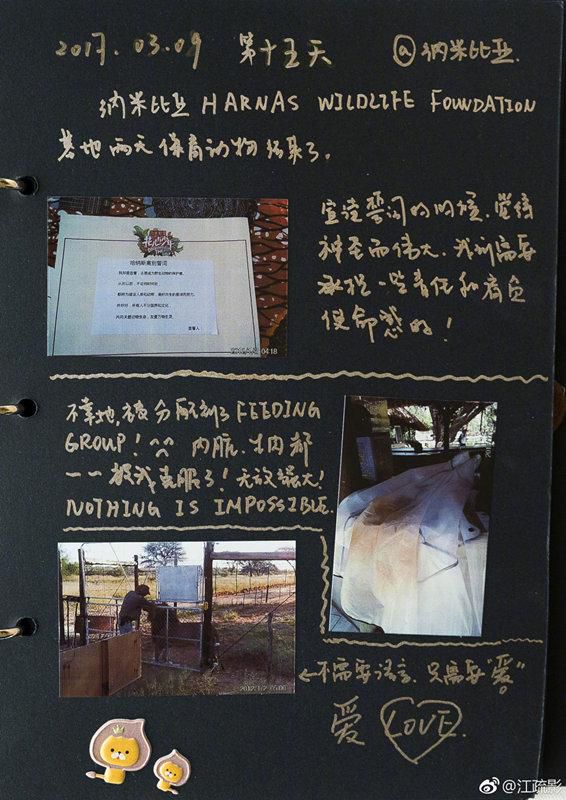 2017.03.09 第十五天 @纳米比亚.
纳米比亚 HARNAS WILDLIFE FOUNDATION
基地两天保育动物结束了。
哈纳斯离别誓词
宣誓人
2012/1/2 04:18
宣读誓词的时候,觉得
神圣而伟大,我们需要
承担一些责任和肩负
使命感的!
不幸地,被分配到了FEEDING
GROUP! ^^ 内脏、生肉都
一一被我克服了!无敌最大!
NOTHING IS IMPOSSIBLE.
2012/1/2 05:00
←不需要语言,只需要"爱"。
爱 LOVE.
@江疏影